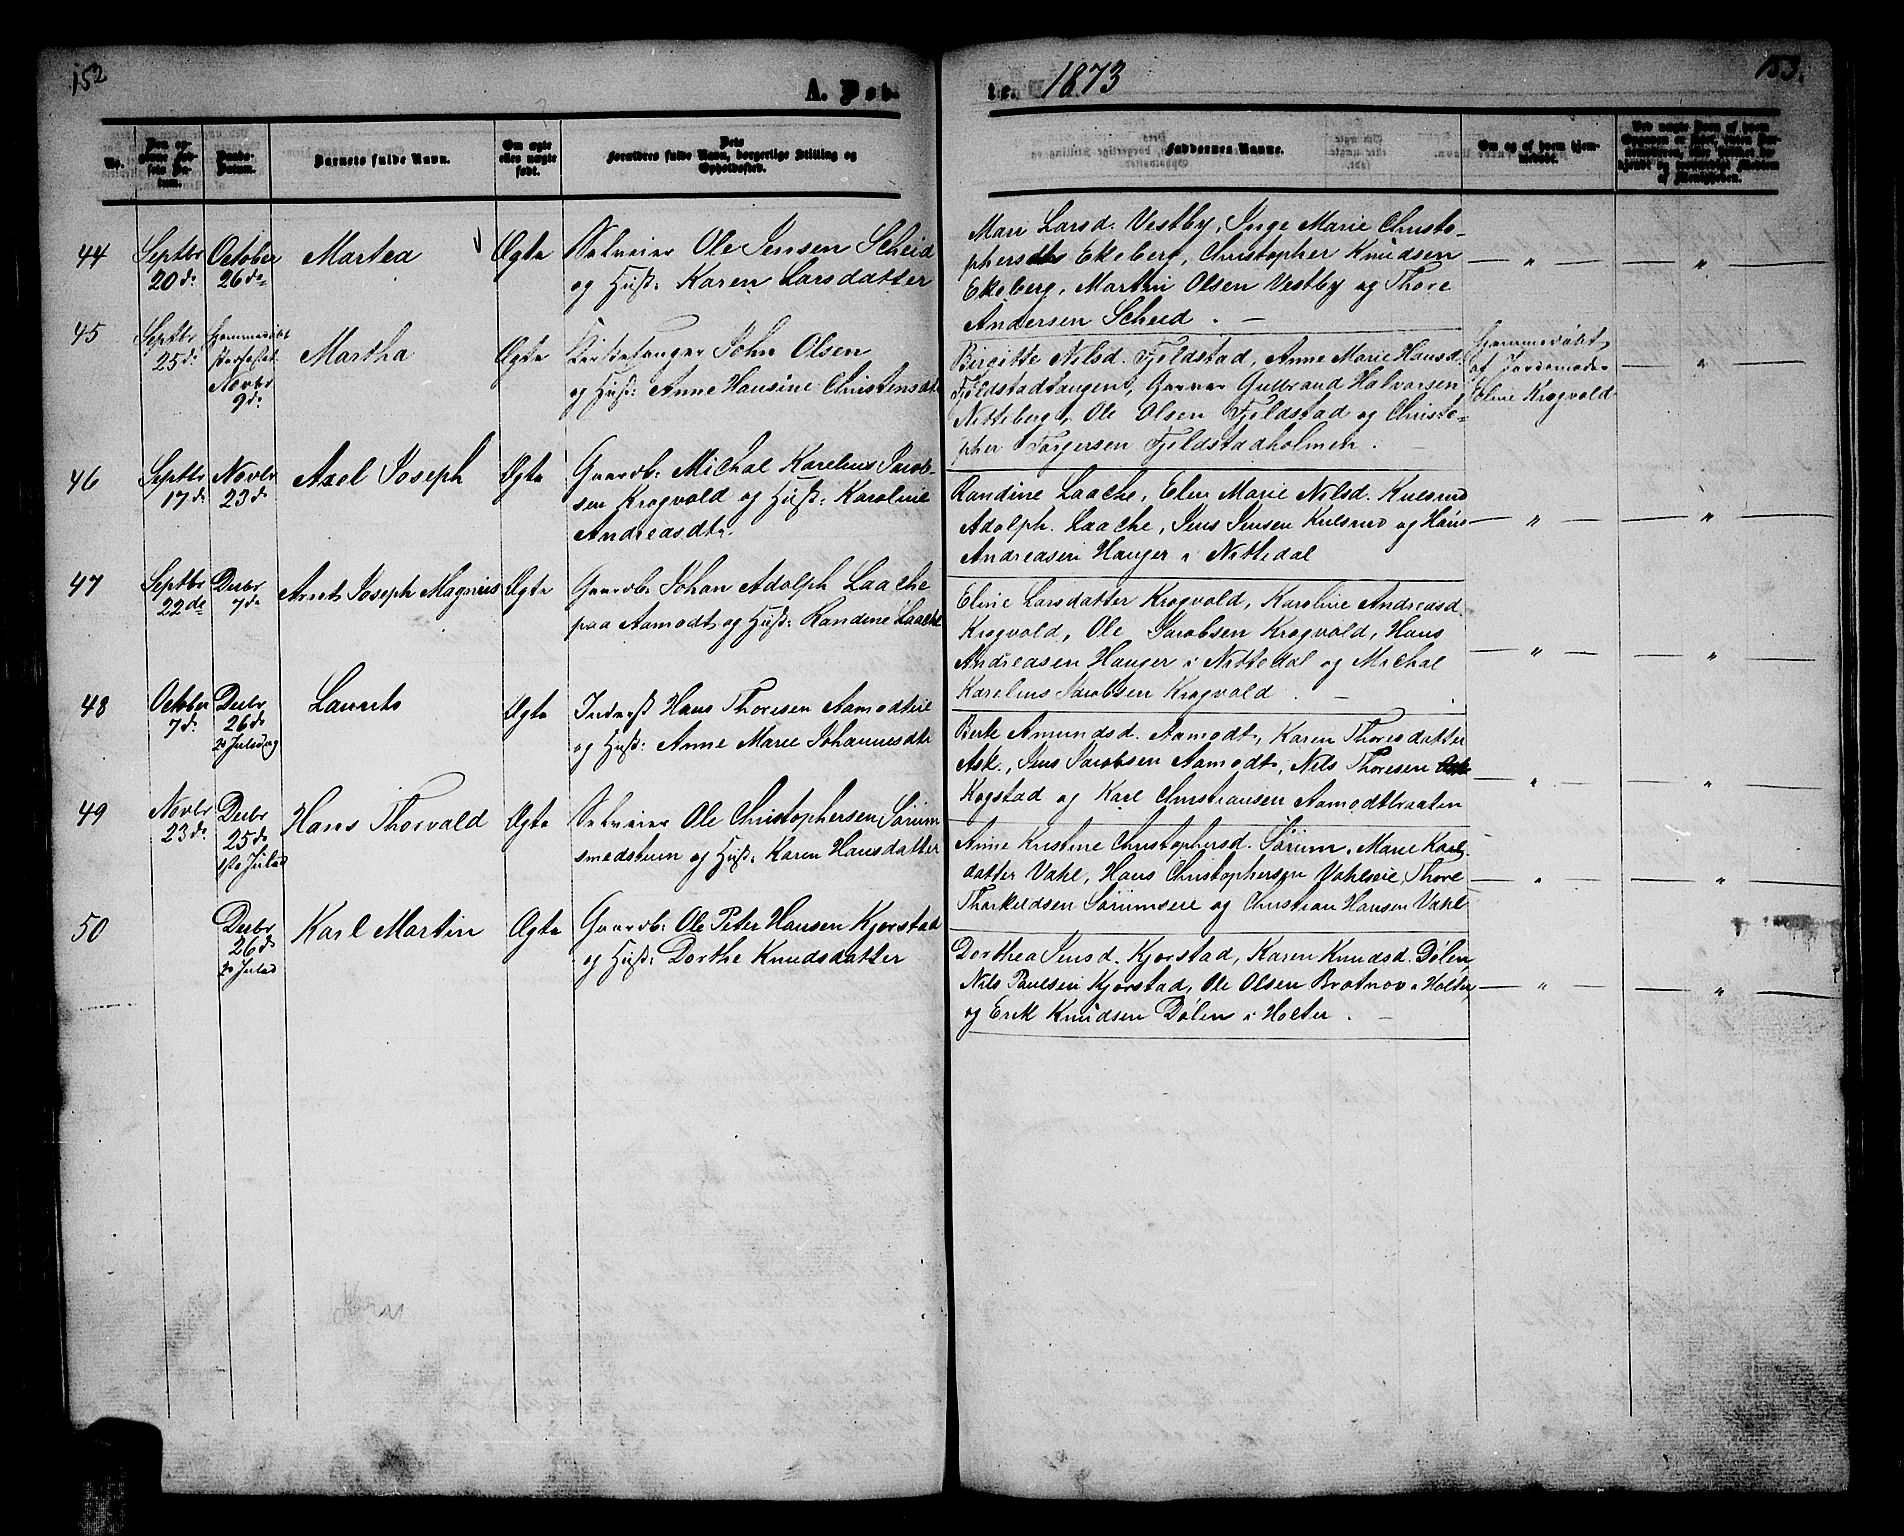 152
A. Føb-
te. 1873
153.
No.
Barnets fulde Navn.
Om ægte eller uægte født.
Forældres fulde Navn, borgerlige Stilling og Opholdssted.
Faddernes Navne.
Om og af hvem hjemmedøbt.
44
Septbr 20de
October 26de
Martea
Ægte
Selveier Ole Jensen Scheid
og Hust: Karen Larsdatter
Mari Larsd. Vestby, Inge Marie Christo-
phersdtr Ekeberg, Christopher Knudsen
Ekeberg, Martin Olsen Vestby og Thore
Andersen Scheid. —
45
Septbr 25de
Hjemmedøbt
Novbr 9de
Martha
Ægte
Kirkesanger John Olsen
og Hust: Anne Hansine Christensdt
Birgitte Nilsd. Fjeldstad, Anne Marie Hansd.
Fjeldstadtangen, Garver Gulbrand Halvorsen
Nitteberg, Ole Olsen Fjeldstad og Christo-
pher Torgersen Fjeldstadholmen.
Hjemmedøbt
af Jordemoder
Eline Krogvold
46
Septbr 17de
Novbr 23de
Axel Joseph
Ægte
Gaardb: Michal Karelius Jacob-
sen Krogvold og Hust: Karoline
Andreasdtr.
Randine Laache, Elen Marie Nilsd. Kulsrud
Adolph Laache, Jens Jensen Kulsrud og Hans
Andreasen Hauger i Nittedal
47
Septbr 22de
Decbr 7de
Arnt Joseph Magnus
Ægte
Gaardb: Johan Adolph Laache
paa Aamodt og Hust: Randine Laache
Eline Larsdatter Krogvold, Karoline Andreasd.
Krogvold, Ole Jacobsen Krogvold, Hans
Andreasen Hauger i Nittedal og Michal
Karelius Jacobsen Krogvold. —
48
October 7de
Decbr 26de
2s Juledag
Laurits
Ægte
Inderst Hans Thoresen Aamodteie
og Hust: Anne Marie Johannesdtr
Berte Amundsd. Aamodt, Karen Thoresdatter
Ask, Jens Jacobsen Aamodt, Nils Thoresen
Kogstad og Karl Christiansen Aamodtbraaten
49
Novbr 23de
Decbr 25de
1ste Juled
Hans Thorvald
Ægte
Selveier Ole Christophersen Sørum
smedstuen og Hust: Karen Hansdatter
Anne Kristine Christophersd. Sørum, Marie Karls
datter Vahl, Hans Christophersen Vahlseie, Thore
Thorkildsen Sørumseie og Christian Hansen Vahl
50
Decbr 26de
2s Juled
Karl Martin
Ægte
Gaardb: Ole Peter Hansen Kjorstad
og Hust: Dorthe Knudsdatter
Dorthea Jensd. Kjorstad, Karen Knudsd. Dølen,
Nils Paulsen Kjorstad, Ole Olsen Bratnov i Holter,
og Erik Knudsen Dølen i Holter. —